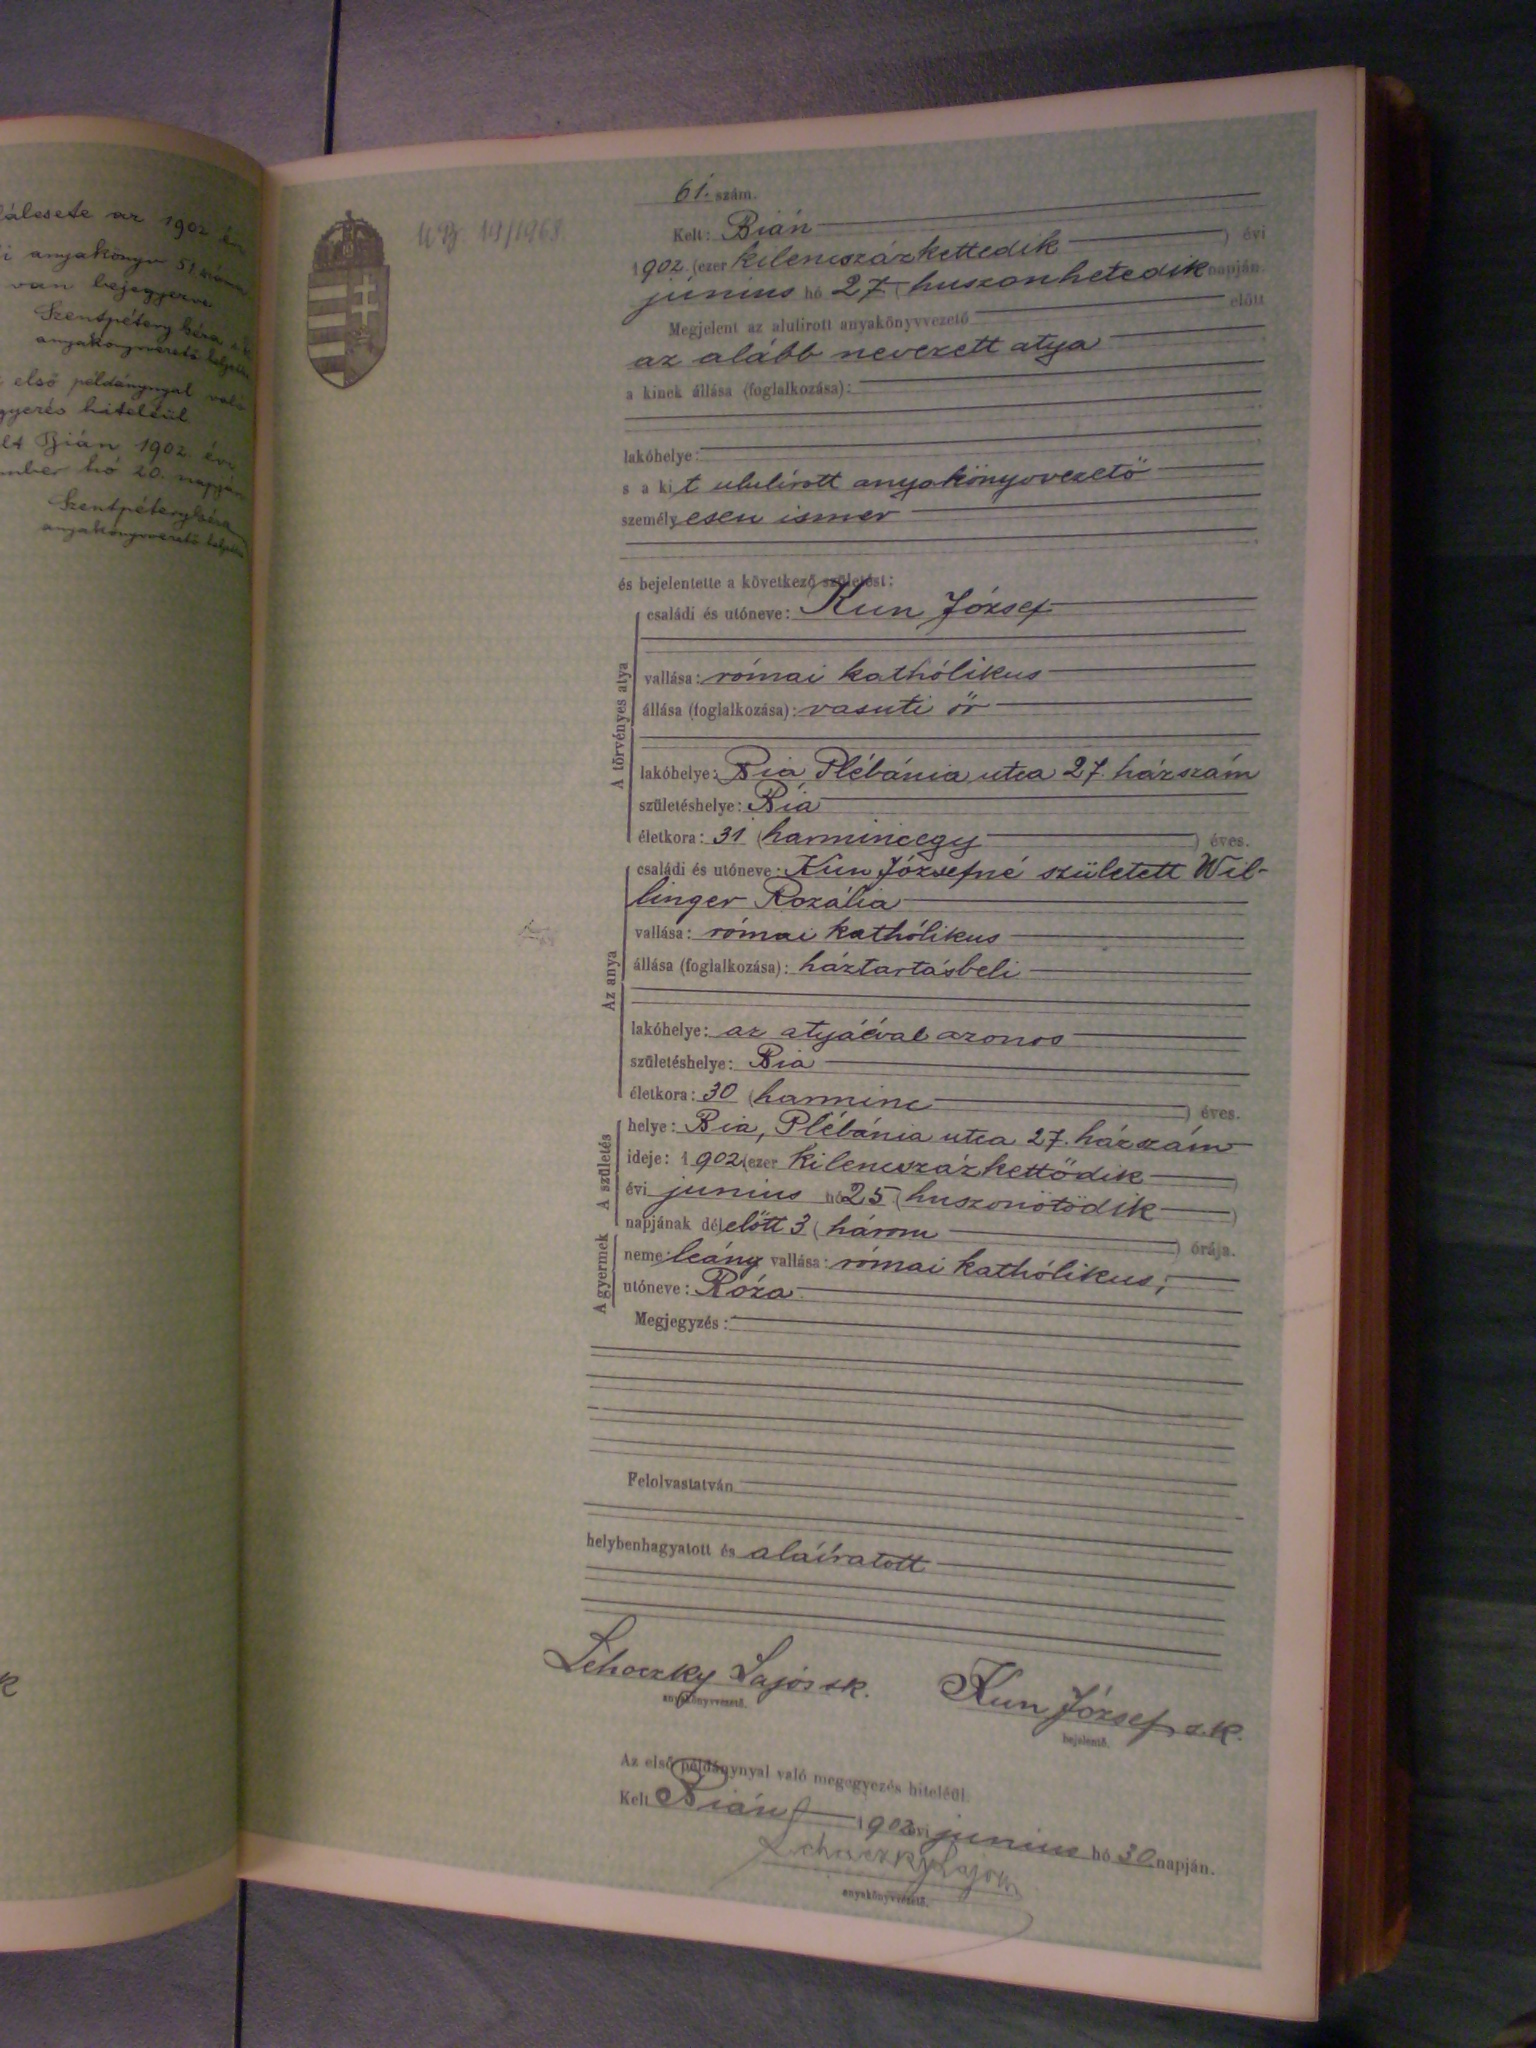 1902
anyakönyv 51
van bejegyezve
Szentpétery Géza
anyakönyvvezető
első példánynyal való
hiteléül
Bián 1902. évi
hó 20. napján
Szentpétery Géza
anyakönyvvezető
19/1968
61. szám.
Kelt: Bián
1902. (ezer kilenczázkettedik ) évi
június hó 27 (huszonhetedik napján.
Megjelent az alulirott anyakönyvvezető előtt
az alább nevezett atya
a kinek állása (foglalkozása):
lakóhelye:
s a kit alulírott anyakönyvvezető
személyesen ismer
és bejelentette a következő születést:
A törvényes atya
családi és utóneve: Kun József
vallása: római kathólikus
állása (foglalkozása): vasuti őr
lakóhelye: Bia, Plébánia utca 27. házszám
születéshelye: Bia
életkora: 31 (harmincegy ) éves.
Az anya
családi és utóneve: Kun Józsefné született Wil-
linger Rozália
vallása: római kathólikus
állása (foglalkozása): háztartásbeli
lakóhelye: az atyáéval azonos
születéshelye: Bia
életkora: 30 (harminc ) éves.
A születés
helye: Bia, Plébánia utca 27. házszám
ideje: 1902 (ezer kilenczázkettődik )
évi június hó 25 (huszonötödik )
napjának délelőtt 3 (három ) órája.
A gyermek
neme: leány vallása: római kathólikus;
utóneve: Róza
Megjegyzés:
Felolvastatván
helybenhagyatott és aláíratott
Lehoczky Lajos sk. Kun József s.k.
anyakönyvvezető. bejelentő.
Az első példánynyal való megegyezés hiteléül.
Kelt Bián 1902 évi június hó 30 napján.
Lehoczky Lajos
anyakönyvvezető.